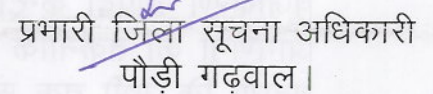 प्रभारी जिला सूचना अधिकारी
पौड़ी गढ़वाल।